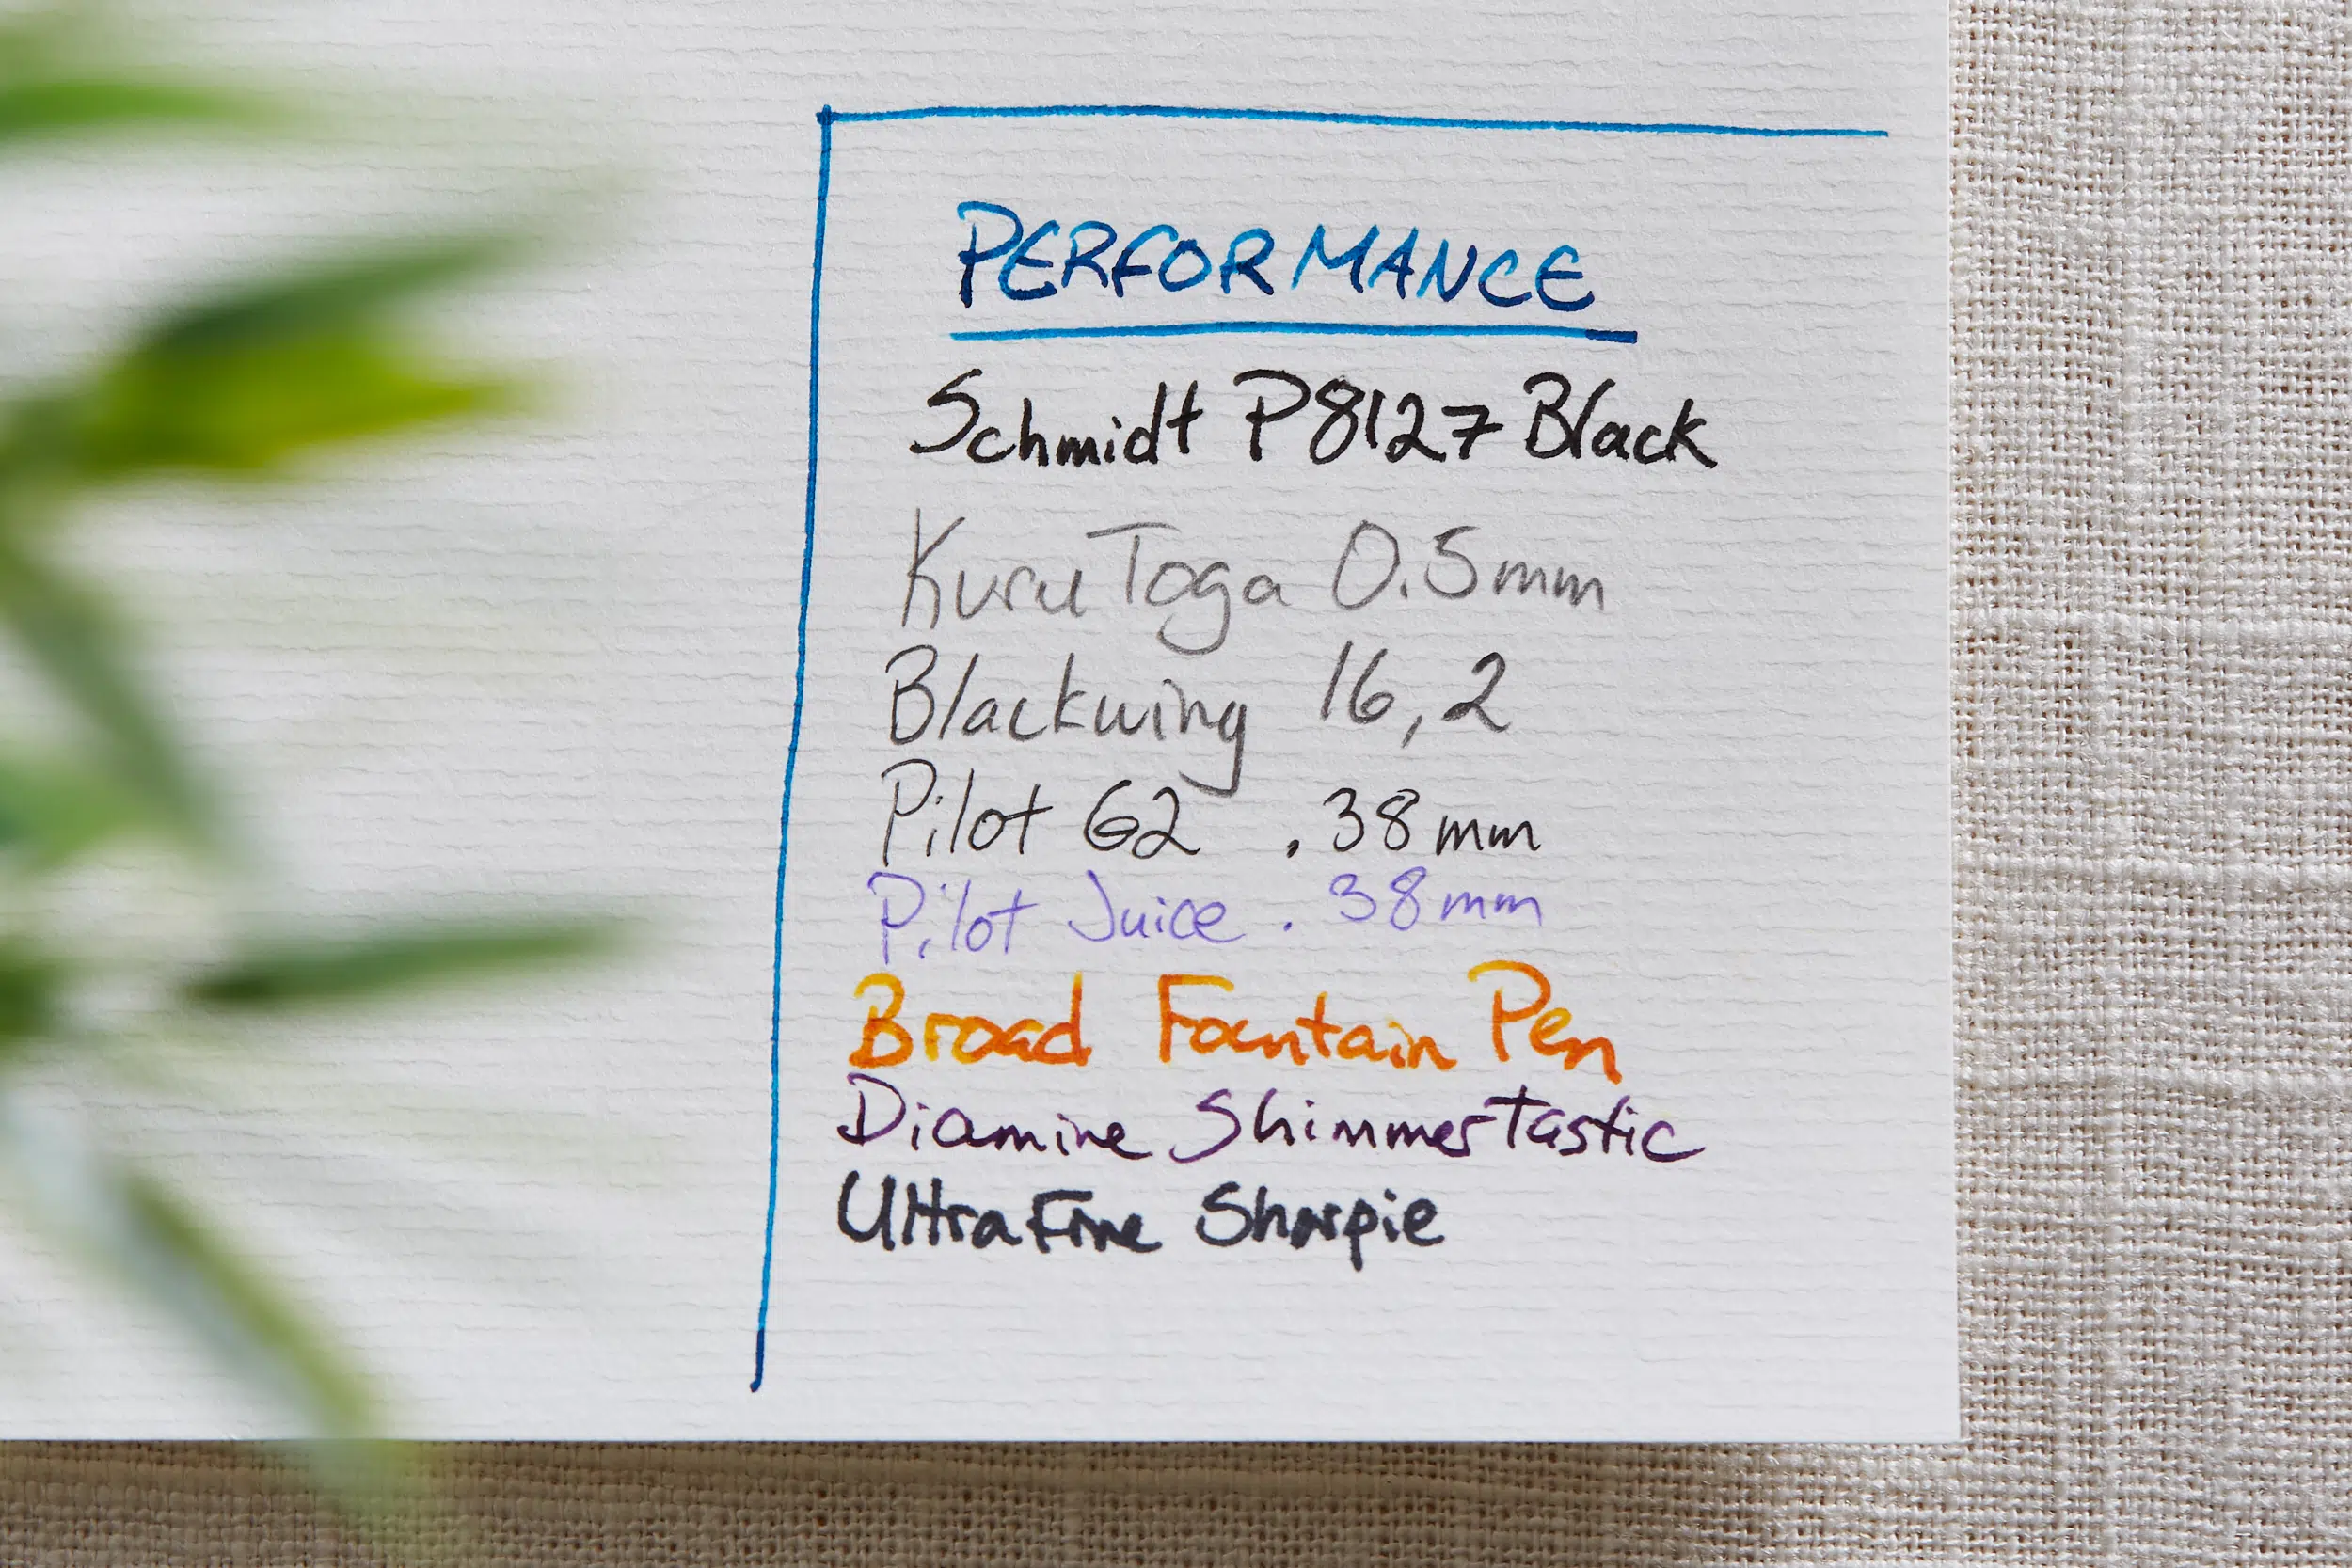 PERFORMANCE
Schmidt P8127 Black
Kuru Toga 0.5mm
Blackwing 16,2
Pilot G2 .38mm
Pilot Juice .38mm
Broad Fountain Pen
Diamine Shimmertastic
Ultra Fine Sharpie